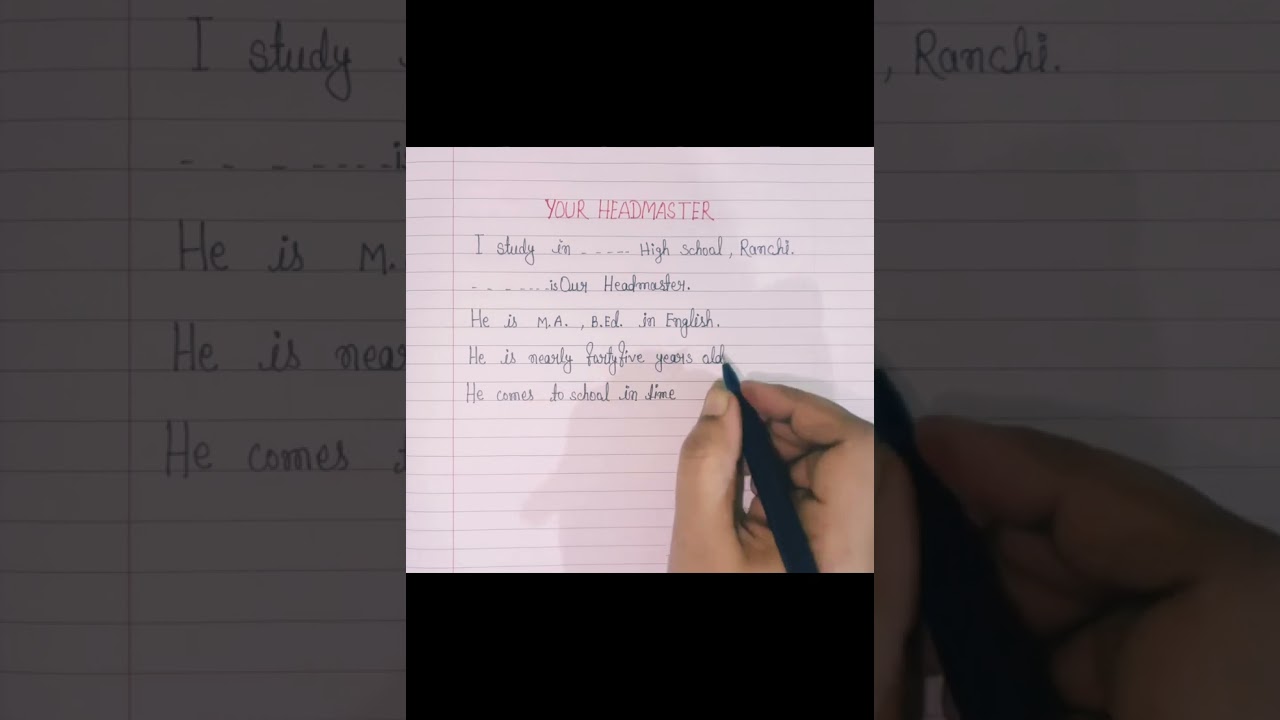 YOUR HEADMASTER
I study in - - - - - High school, Ranchi.
- - - - - - - is Our Headmaster.
He is M.A. , B.Ed. in English.
He is nearly fortyfive years old
He comes to school in time